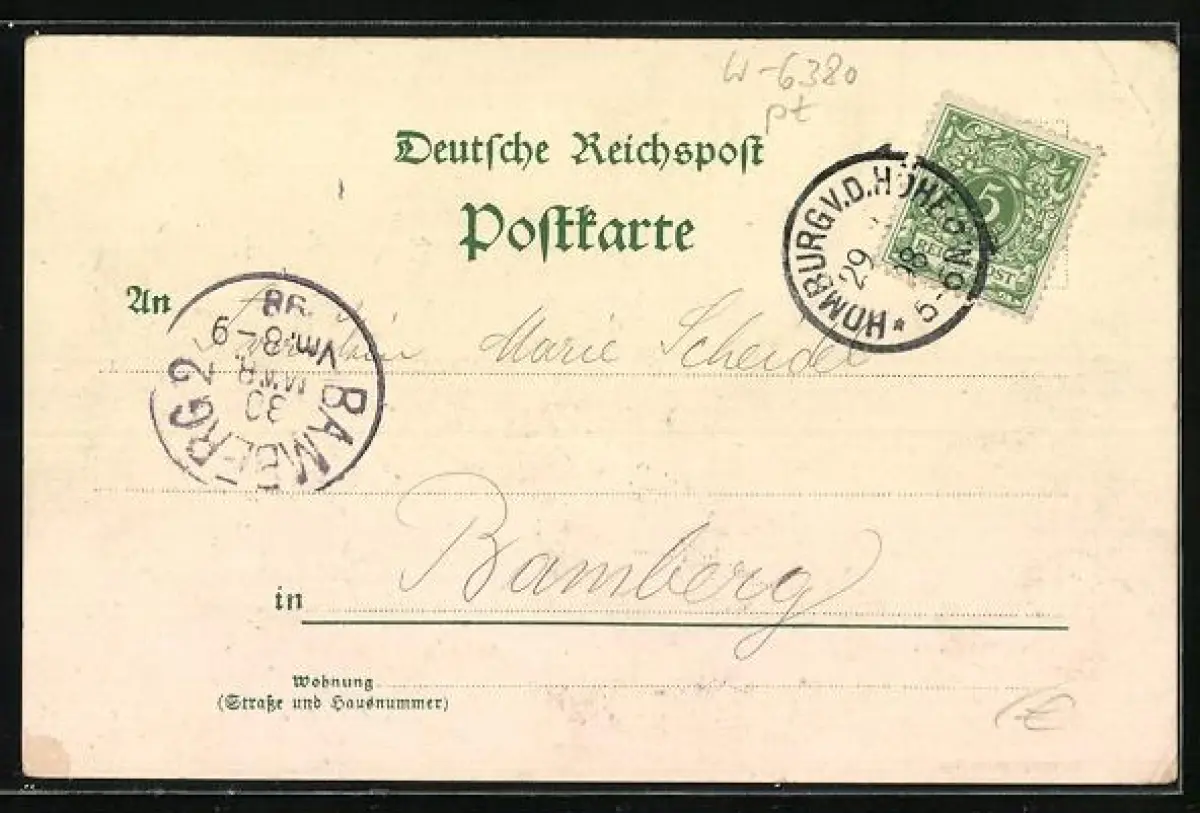 W-6380
pt
Deutsche Reichspost
Postkarte
5
REICHSPOST
HOMBURG V.D. HÖHE
29
98
5-6N.
An
Fräulein Marie Scheidel
BAMBERG 2
30
MAR.
Vm.8-9
98.
Bamberg
in
Wohnung
(Straße und Hausnummer)
€